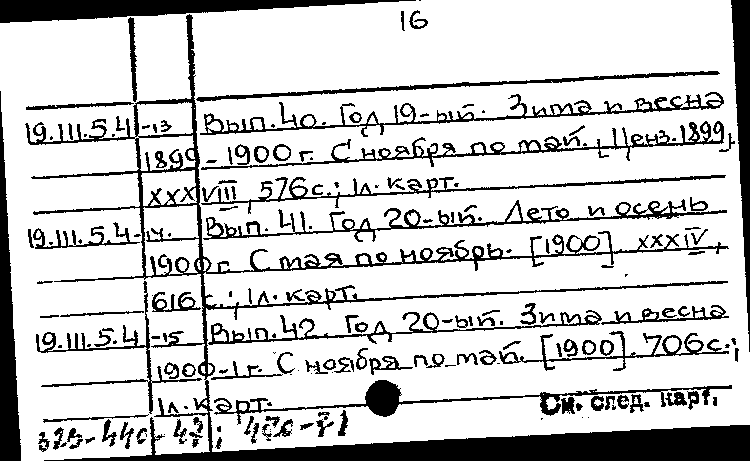 16
19.III.5.4 -13 Вып. 40. Год 19-ый. Зима и весна
1899-1900 г. С ноября по май. [Ценз. 1899].
XXXVIII, 576 с.; 1 л. карт.
19.III.5.4 -14. Вып. 41. Год 20-ый. Лето и осень
1900 г. С мая по ноябрь. [1900]. XXXIV,
616 с.; 1 л. карт.
19.III.5.4 -15 Вып. 42. Год 20-ый. Зима и весна
1900-1 г. С ноября по май. [1900]. 706 с.;
1 л. карт.
См. след. карт.